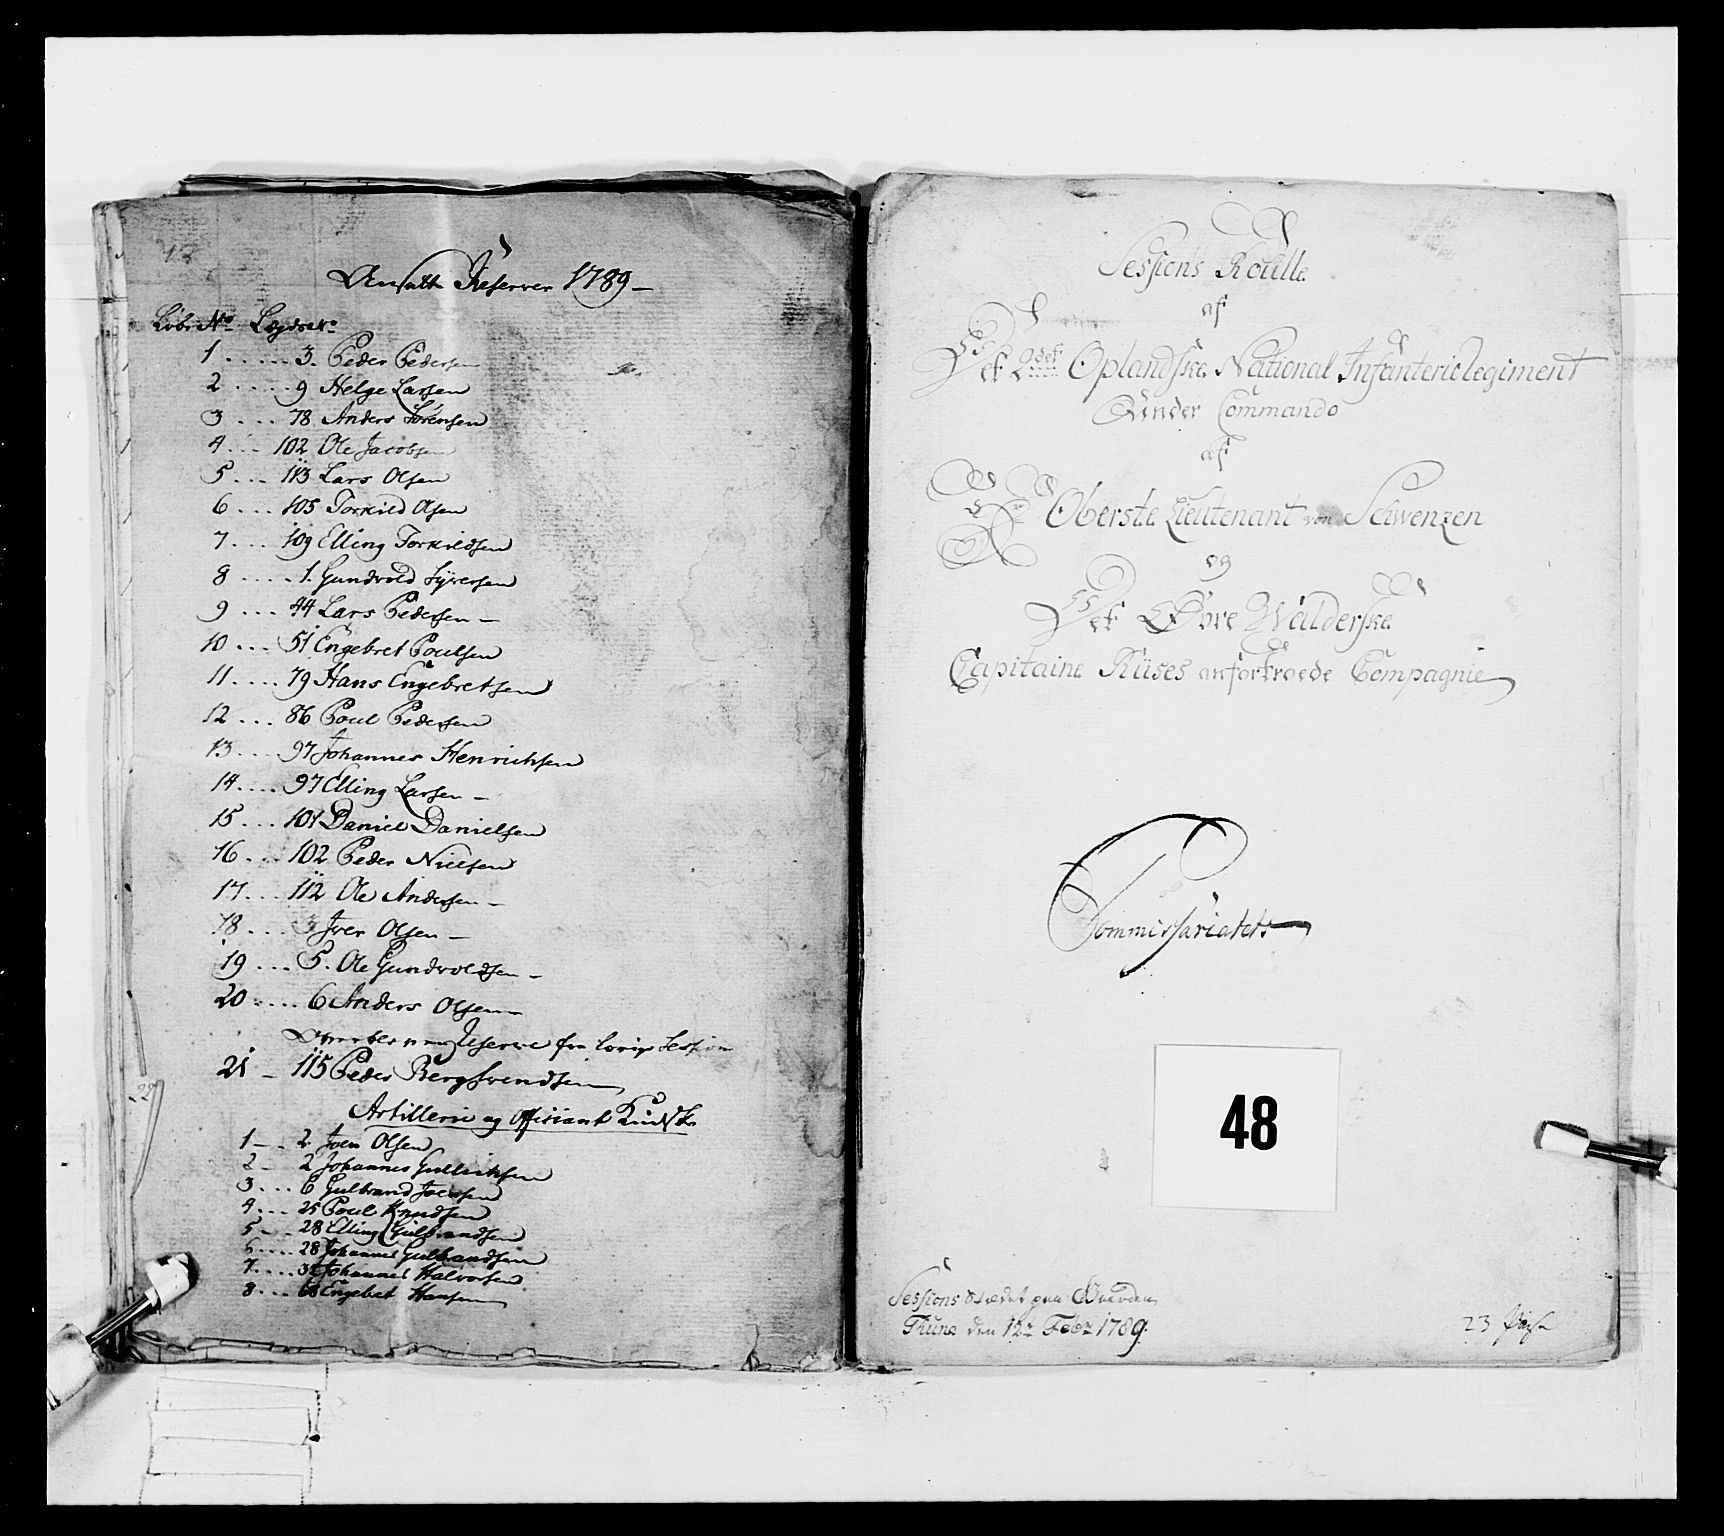 Ansatte Reserver 1789 –
Løbe No. Lægds No.
1 . . . . . . 3. Peder Pedersen
2 . . . . . 9 Helge Larsen
3 . . . . 78 Anders Sørensen
4 . . . 102 Ole Jacobsen
5 . . . 113 Lars Olsen
6 . . . 105 Torkild Olsen
7 . . . . 109 Elling Torkildsen
8 . . . . . 1. Gundvold Syversen
9 . . . 44 Lars Pedersen –
10 . . . 51 Engebret Poulsen
11 . . . . 79 Hans Engebretsen
12 . . . 86 Poul Pedersen
13 . . . . 97 Johannes Henrichsen
14 . . . . 97 Elling Larsen –
15 . . . 101 Daniel Danielsen
16 . . . 102 Peder Nielsen
17 . . . 112 Ole Andersen –
18 . . . 3 Iver Olsen –
19 . . . 5. Ole Gundvoldsen –
20 . . . . 6 Anders Olsen –
Reserve fra forrige Session
21 – 115 Peder Bergsvendsen
Artillerie og Officiant Knegte
1 – . 2. Joen Olsen
2 – 2 Johannes Gullichsen
3 . . . 6 Gulbrand Joensen
4 . . . 25 Poul Knudsen
5 – . 28 Elling Gulbrandsen
6 . . . . 28 Johannes Gulbrandsen
7 . . . . Johannes Halvorsen
8 . . . 68 Engebret Hansen
22
Sessions Roulle
af
Det 2det Oplandske National Infanterie Regiment
Under Commando
af
Hr Oberste Lieutenant von Schwenzen
og
Det Øvre Walderske
Capitaine Ruses anfortroede Compagnie
Commissariatets
48
Sessions Stædet paa Gaarden
Thune den 12te Febr 1789.
23